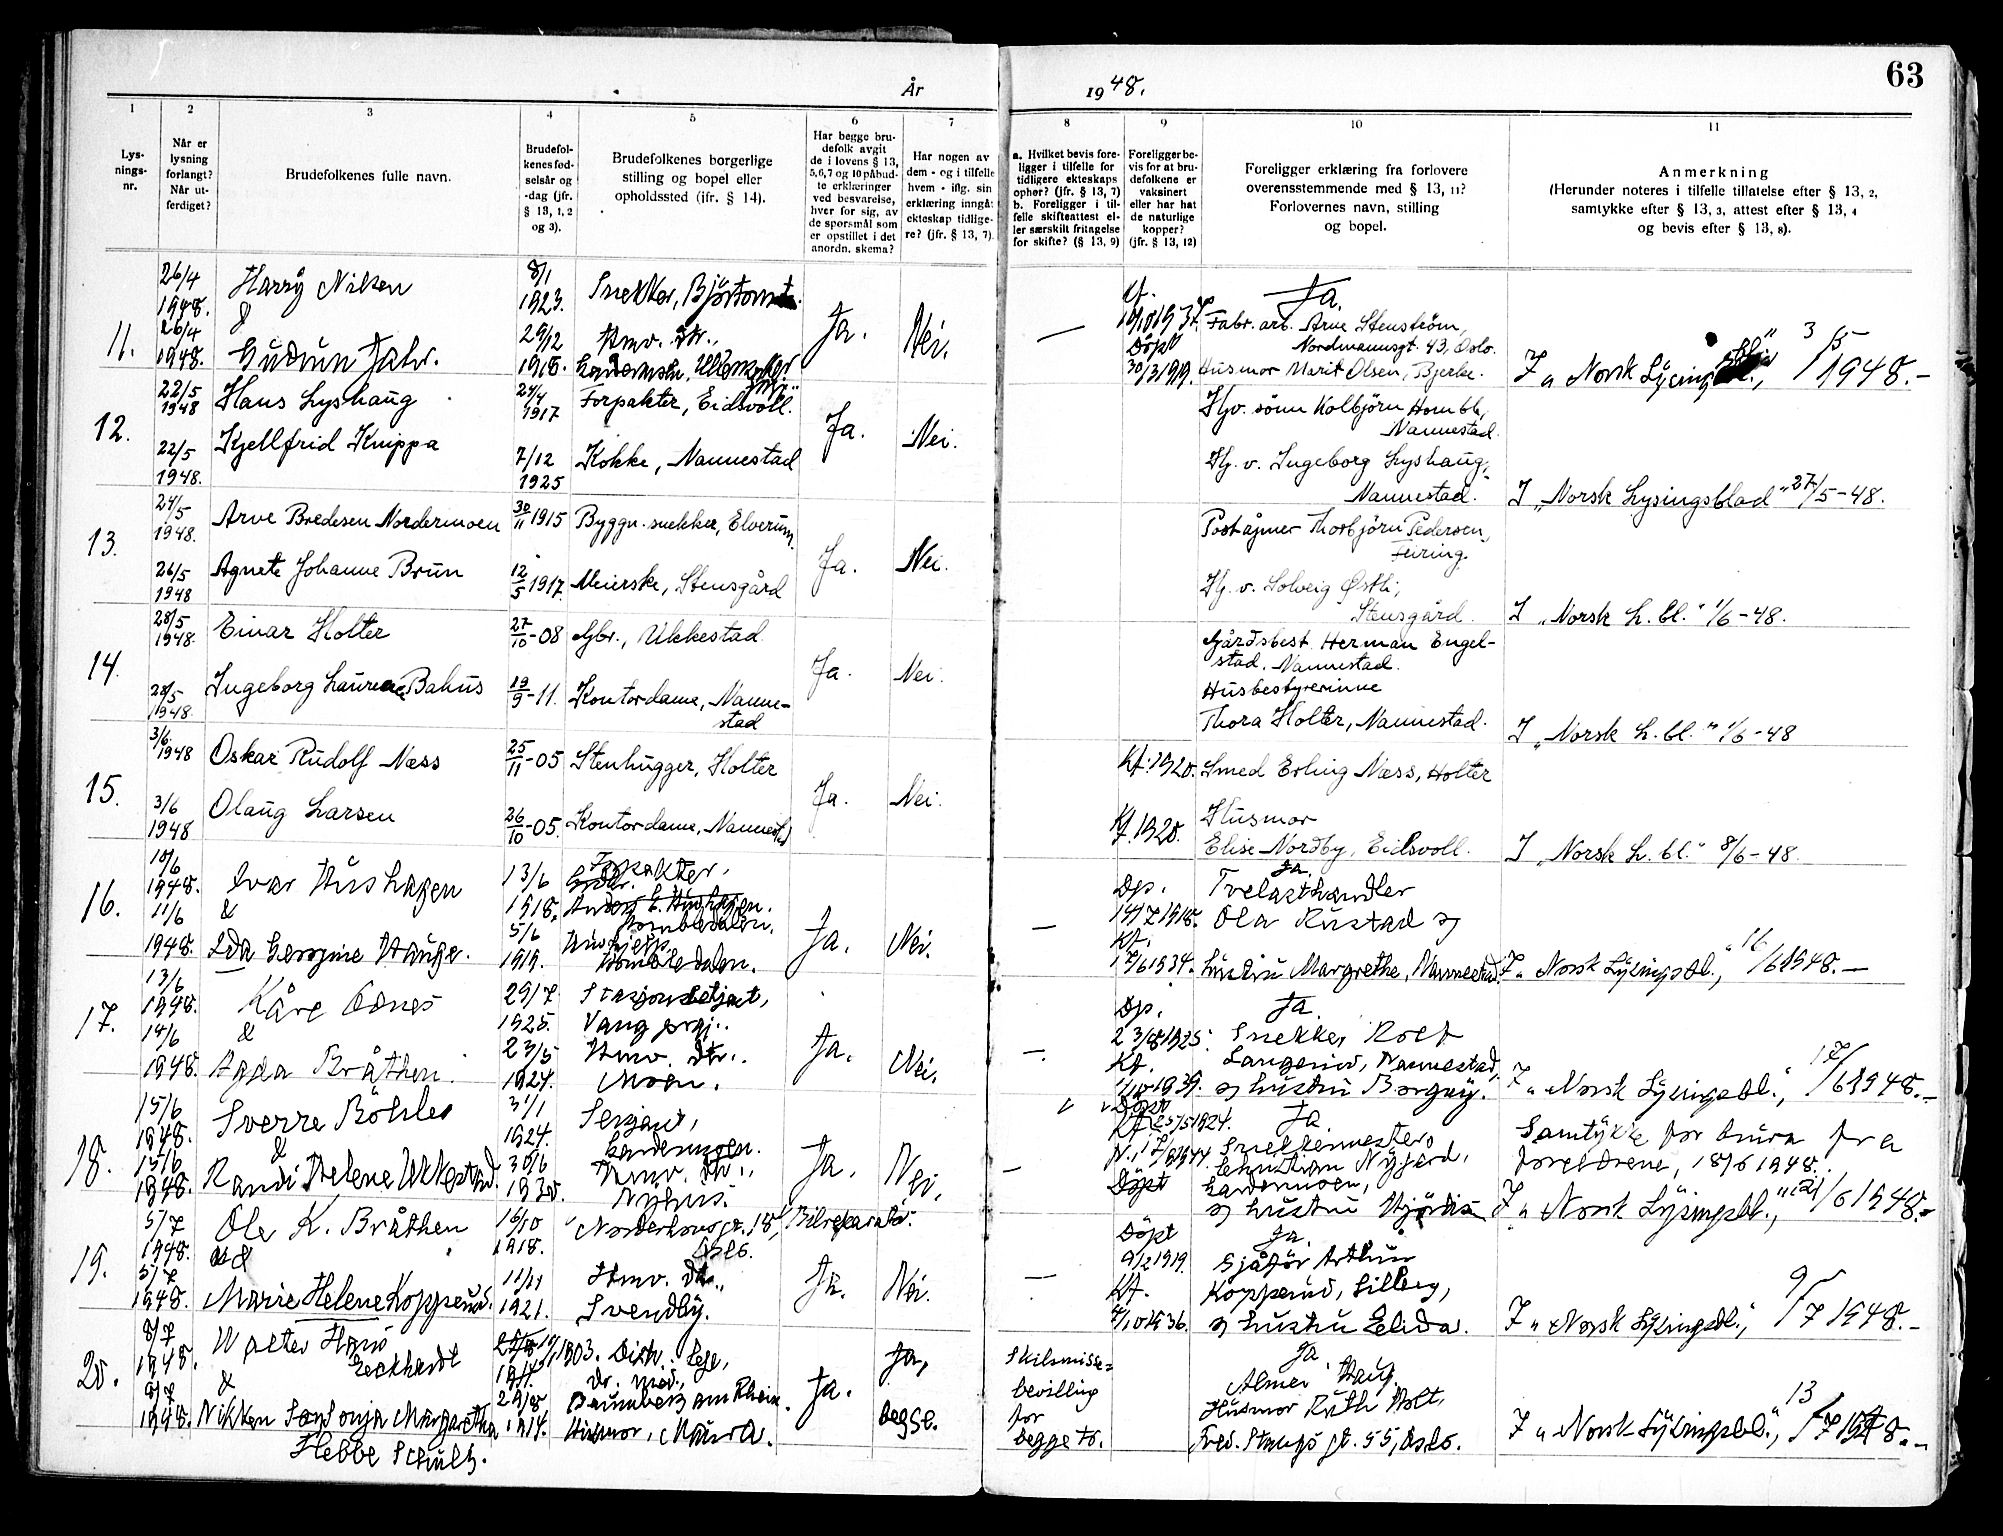 År 1948.
63
1
2
3
4
5
6
7
8
9
10
11
Lys-
nings-
nr.
Når er
lysning
forlangt?
Når ut-
ferdiget?
Brudefolkenes fulle navn.
Brudefol-
kenes fød-
selsår og
-dag (jfr.
§ 13, 1, 2
og 3).
Brudefolkenes borgerlige
stilling og bopel eller
opholdssted (jfr. § 14).
Har begge bru-
defolk avgit
de i lovens § 13,
5, 6, 7 og 10 påbud-
te erklæringer
ved besvarelse,
hver for sig, av
de spørsmål som
er opstillet i det
anordn. skema?
Har nogen av
dem - og i tilfelle
hvem - iflg. sin
erklæring inngåt
ekteskap tidlige-
re? (jfr. § 13, 7)
a. Hvilket bevis fore-
ligger i tilfelle for
tidligere ekteskaps
ophør? (jfr. § 13, 7)
b. Foreligger i til-
felle skifteattest el-
ler særskilt fritagelse
for skifte? (§ 13, 9)
Foreligger be-
vis for at bru-
defolkene er
vaksinert
eller har hat
de naturlige
kopper?
(jfr. § 13, 12)
Foreligger erklæring fra forlovere
overensstemmende med § 13, 11?
Forlovernes navn, stilling
og bopel.
Anmerkning
(Herunder noteres i tilfelle tillatelse efter § 13, 2,
samtykke efter § 13, 3, attest efter § 13, 4
og bevis efter § 13, 8).
11.
26/4
1948.
26/4
1948.
Harry Nilsen
&
Gudrun Jahr.
8/1
1923.
29/12
1918.
Snekker,
Hmv. Dtr.,
Ja.
Nei.
—
Kf.
1937.
Döpt
30/3 1919.
Ja.
Fabr. arb. Arne Stenström,
Nordmannsgt. 43, Oslo.
Husmor Marit Olsen, Bjerke.
I „Norsk Lysingsbl.", 3/5 1948.-
12.
22/5
1948
22/5
1948.
Hans Lyshaug
Kjellfrid Knippa
24/4
1917
7/12
1925
Forpakter, Eidsvoll.
Kokke, Nannestad
Ja.
Nei.
Hj. v. Ingeborg Lyshaug,
Nannestad.
I „Norsk Lysingsblad" 27/5-48.
13.
24/5
1948.
26/5
1948
Arne Bredesen Nordermoen
Agnete Johanne Brun
30/11 1915
12/5 1917.
Byggn. snekker, Elverum.
Meierske, Stensgård
Ja.
Nei.
Poståpner Thorbjörn Pedersen,
Feiring.
Hj. v. Solveig Østli,
Stensgård.
I „Norsk L. bl." 1/6-48.
14.
28/5
1948.
28/5
1948.
Einar Holter
Ingeborg Laurense Bahus
27/10-08
19/9-11.
Gbr., Ukkestad
Kontordame, Nanne-
stad
Ja.
Nei.
Gårdsbest. Herman Engel-
stad, Nannestad.
Husbestyrerinne
Thora Holter, Nannestad.
I „Norsk L. bl." 1/6-48
15.
3/6
1948
3/6
1948
Oskar Rudolf Næss
Olaug Larsen
25/11-05
26/10-05.
Stenhugger, Holter
Kontordame, Nannestad
Ja.
Nei.
Kf. 1920.
Kf. 1920.
Smed Erling Næss, Holter
Husmor
Elise Nordby, Eidsvoll.
I „Norsk L. bl." 8/6-48.
16.
10/6
1948.
11/6
1948.
Ivar Hushagen
&
Hauge.
13/6
1918.
5/6
1919.
Forpakter,
Hushjelp,
Ja.
Nei.
—
Dp.
14/7 1918.
Kf.
1934.
Ja.
Trelasthandler
Ola Rustad og
hustru Margrethe, Nannestad.
I „Norsk Lysingsbl.", 16/6 1948.—
17.
13/6
1948.
14/6
1948.
Kåre
&
Bråthen.
29/7
1925.
23/5
1924.
Stasjonsbetjent,
Hmv. Dtr.,
Moen.
Ja.
Nei.
—.
Dp.
23/8 1925.
Kf.
1939.
Ja.
Snekker Rolf
Nannestad,
og hustru Borgny.
I „Norsk Lysingsbl.", 17/6 1948.-
18.
15/6
1948.
15/6
1948.
Sverre Böhler
&
Randi Helene Ukkestad.
31/1
1924.
30/6
1930.
Sersjant,
Gardermoen.
Hmv. Dtr.,
Nyhus.
Ja.
Nei.
—
Döpt
25/5 1924.
Döpt
Ja
Snekkermester
Christian Nygård,
Gardermoen,
og hustru Hjördis
Samtykke for brura fra
foreldrene, 18/6 1948.
I „Norsk Lysingsbl.", 21/6 1948.-
19.
5/7
1948.
5/7
1948.
Ole K. Bråthen
&
Marie Helene Kopperud.
16/10
1918.
11/11
1921.
Norderhovsgt. 18, Bilreparatör.
Oslo.
Hmv. Dtr.,
Svendby.
Ja.
Nei.
—
Döpt
9/2 1919.
Kf.
4/10 1936.
Ja.
Sjåför Arthur
Kopperud,
og hustru Elida.
I „Norsk Lysingsbl.", 9/7 1948.-
20.
8/7
1948.
8/7
1948.
Walter Hans
Eeckhardt
&
Margaretha
Hebbe Schulz.
1903.
29/8,
1914.
Distr. lege,
Dr. med.,
am Rhein.
Husmor, Maura.
Ja.
Ja,
begge.
Skilsmisse-
bevilling
for
begge to.
Ja
Almer Haug.
Husmor Ruth Holt,
gt. 55, Oslo.
I „Norsk Lysingsbl.", 13/7 1948.-